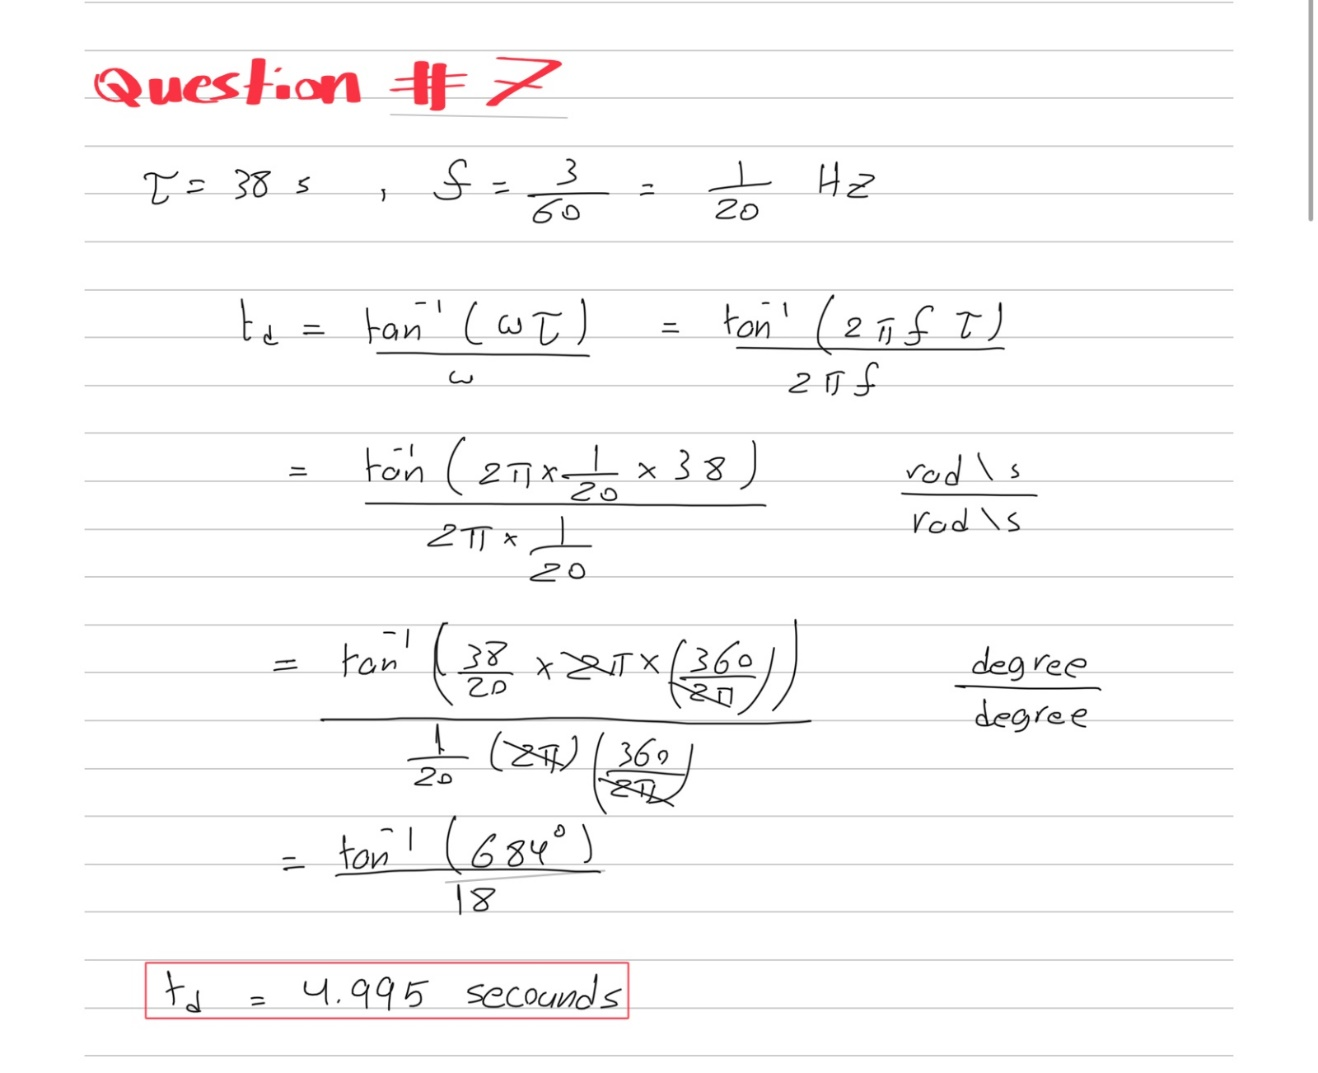 Question # 7
τ = 38 s , f = 3/60 = 1/20 Hz
t_d = tan⁻¹(ωτ)/ω = tan⁻¹(2πfτ)/2πf
= tan⁻¹(2π×1/20×38)/(2π×1/20) rad\s/rad\s
= tan⁻¹(38/20×2π×(360/2π))/(1/20(2π)(360/2π)) degree/degree
= tan⁻¹(684°)/18
t_d = 4.995 secounds